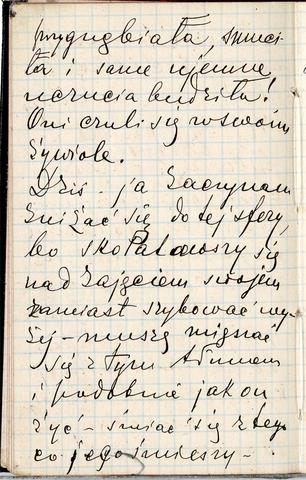 przygnębiała, smuci-
ła i same ujemne
uczucia budziła!
Oni czuli się w swoim
żywiole.
Dziś - ja zaczynam
zniżać się do tej sfery,
bo skoPałowszy się
nad zajęciem swojem
zamiast szybować wy-
żej - muszę mignać
się z tym tłumem
i podobnie jak on
żyć - śmiać się z tego
co jego śmieszy -